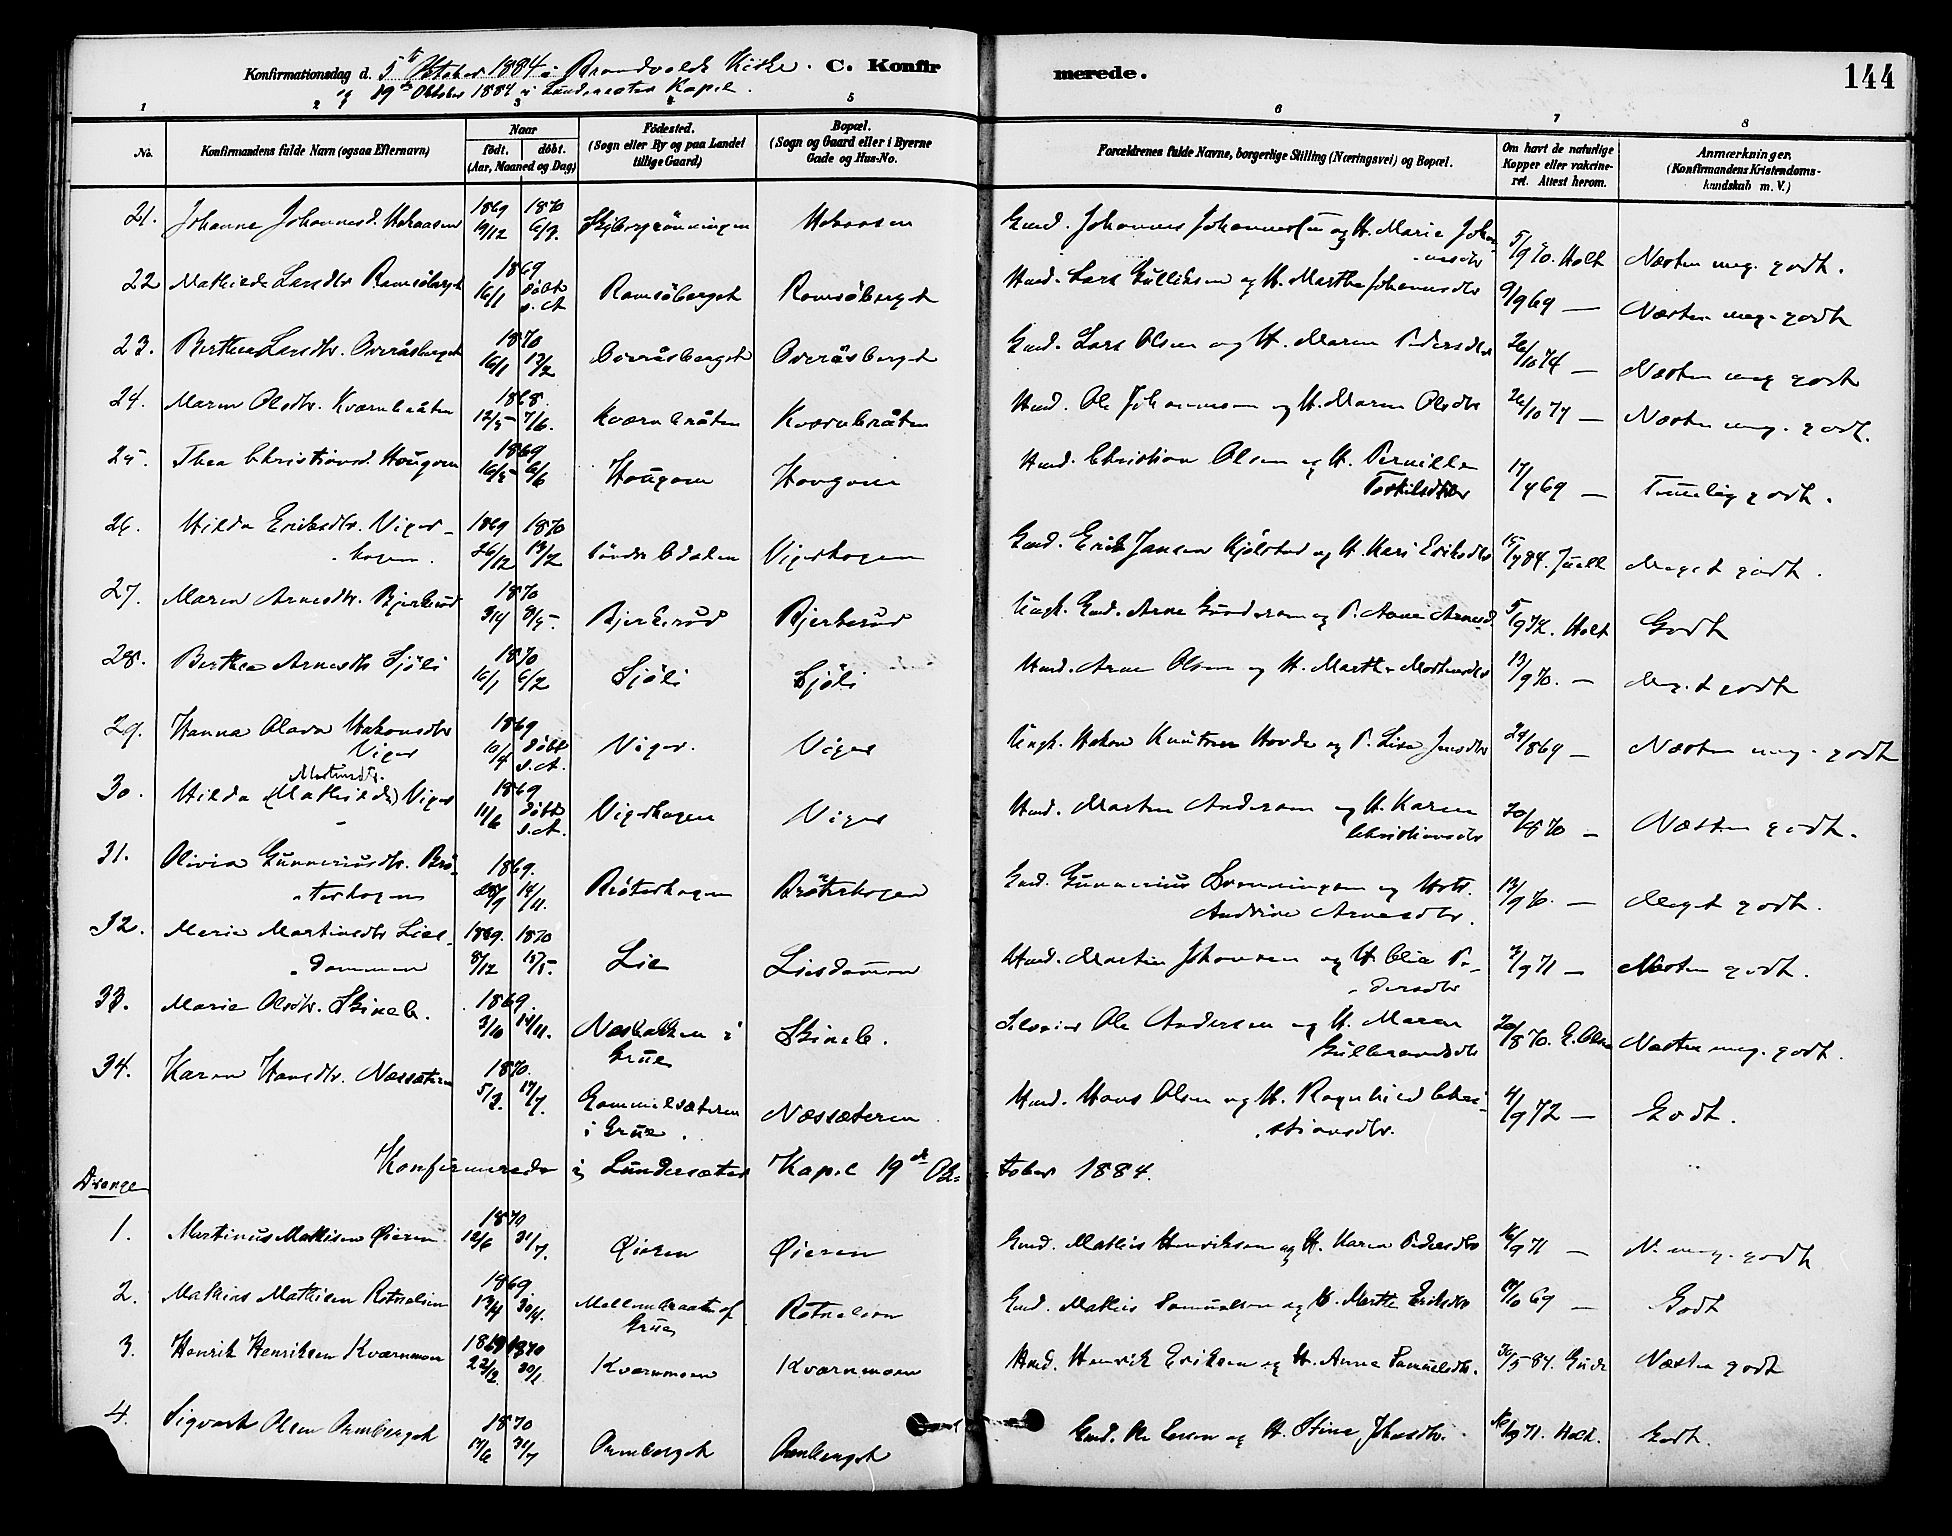 144
Konfirmationsdag d. 5te Oktober 1884 i Brandvolds Kirke. C. Konfirmerede.
og 19de Oktober 1884 i Lundersæter Kapel.
1 2 3 4 5 6 7 8
No. Konfirmandens fulde Navn (ogsaa Efternavn)
Naar født. døbt. (Aar, Maaned og Dag)
Fødested. (Sogn eller By og paa Landet tillige Gaard)
Bopæl. (Sogn og Gaard eller i Byerne Gade og Hus-No.
Forældrenes fulde Navne, borgerlige Stilling (Næringsvei) og Bopæl.
Om havt de naturlige Kopper eller vakcineret. Attest herom.
Anmærkninger. (Konfirmandens Kristendomskundskab m. V.)
21. Johanne Johannesd. 1869 1870 Gmd. Johannes Johannesen og H. Marie Johannesdtr 5/9 70. Holt Næsten meg. godt.
22 Mathilde Larsdtr Ramsøberget 1869 16/1 døbt s. A. Ramsøberget Ramsøberget Hmd. Lars Gulliksen og H. Marthe Johannesdtr 9/9 69 — Næsten meg. godt
23. Berthea Larsdtr. Overåsberget 1870 16/1 13/2 Overåsberget Overåsberget Gmd. Lars Olsen og H. Maren Pedersdtr 26/10 74 — Næsten meg godt
24. Maren Olsdtr. Kværnbråten 1868. 12/5 7/6. Kværnbråten Kværnbråten Hmd. Ole Johannesen og H. Maren Olsdtr 26/10 77 — Næsten meg. godt.
25. Thea Christiansd. Hougom 1869 16/5 6/6 Hougom Hougom Hmd. Christian Olsen og H. Pernille Torkilsdtr 17/9 69 — Temmelig godt.
26. Hilda Eriksdtr. Vigerhagen. 1869 1870 26/12 13/2 Søndre Odalen Vigerhagen Gmd. Erik Jansen Kjølstad og H. Kari Eriksdtr 15/7 84. Juell Meget godt.
27. Maren Arnesdtr. Bjerkerud 1870 3/4 8/5. Bjerkerud Bjerkerud Ungk. Gmd. Arne Gundersen og P. Anne Arnesd. 5/9 72. Holt Godt
28. Berthea Arnesdtr Sjøli 1870 16/1 6/2 Sjøli Sjøli Hmd. Arne Olsen og H. Marthe Mortensdtr 13/9 70. — Meget godt
29. Hanna Olava Hakonsdtr Viger 1869 10/4 døbt s. A. Viger. Viger Ungk. Hakon Knutsen Hovde og P. Lisa Jensdtr 24/8 69 — Næsten meg. godt
30. Hilda (Mathilde) Martinsdtr. Viger 1869 11/6 døbt s. A. Vigerhagen Viger Hmd. Morten Andersen og H. Karen Christiansdtr 20/8 70 — Næsten godt.
31. Olivia Gunneriusdtr. Brøterhagen 1869. 14/11. Brøterhagen Brøterhagen Gmd. Gunnerius Svenningsen og Hstr. Andrine Arnesdtr. 13/9 70. — Meget godt.
32. Marie Martinsdtr Liesdammen 1869. 1870 8/12 15/5. Lie Liesdammen Hmd. Martin Johansen og H. Olia Pedersdtr 3/9 71 — Næsten godt.
33. Marie Olsdtr. Skineb. 1869. 3/10 14/11. i Grue Skineb. Ole Andersen og H. Maren Gulbrandsdtr 20/8 70. E. Olsen Næsten meg. godt.
34. Karen Hansdtr. Næssæteren 1870. 5/3. 17/7. Gammelsæteren i Grue. Næssæteren Hmd. Hans Olsen og H. Ragnhild Christiansdtr. 4/9 72 — Godt.
Konfirmerede i Lundersæter Kapel 19de Oktober 1884.
Drenge
1. Martinus Mathisen Øieren 1870 12/6 31/7. Øieren Øieren Gmd. Mathis Henriksen og H. Karen Pedersdtr 16/9 71 — N. meg. godt
2. Mathias Mathisen Rotnelven 1869. 30/4. Grue Rotnelven Gmd. Mathis Samuelsen og H. Marthe Eriksdtr 69 — Godt
3. Henrik Henriksen Kværnmoen 1869 1870 22/12. 30/1 Kværnmoen Kværnmoen Hmd. Henrik Eriksen og H. Anne Samuelsdtr. 30/5 84. Næsten godt
4. Sigvart Olsen Ormberget 1870 17/6 31/7 Ormberget Ormberget Gmd. Ole Larsen og H. Stine Johansdtr. 71. Holt. Godt.